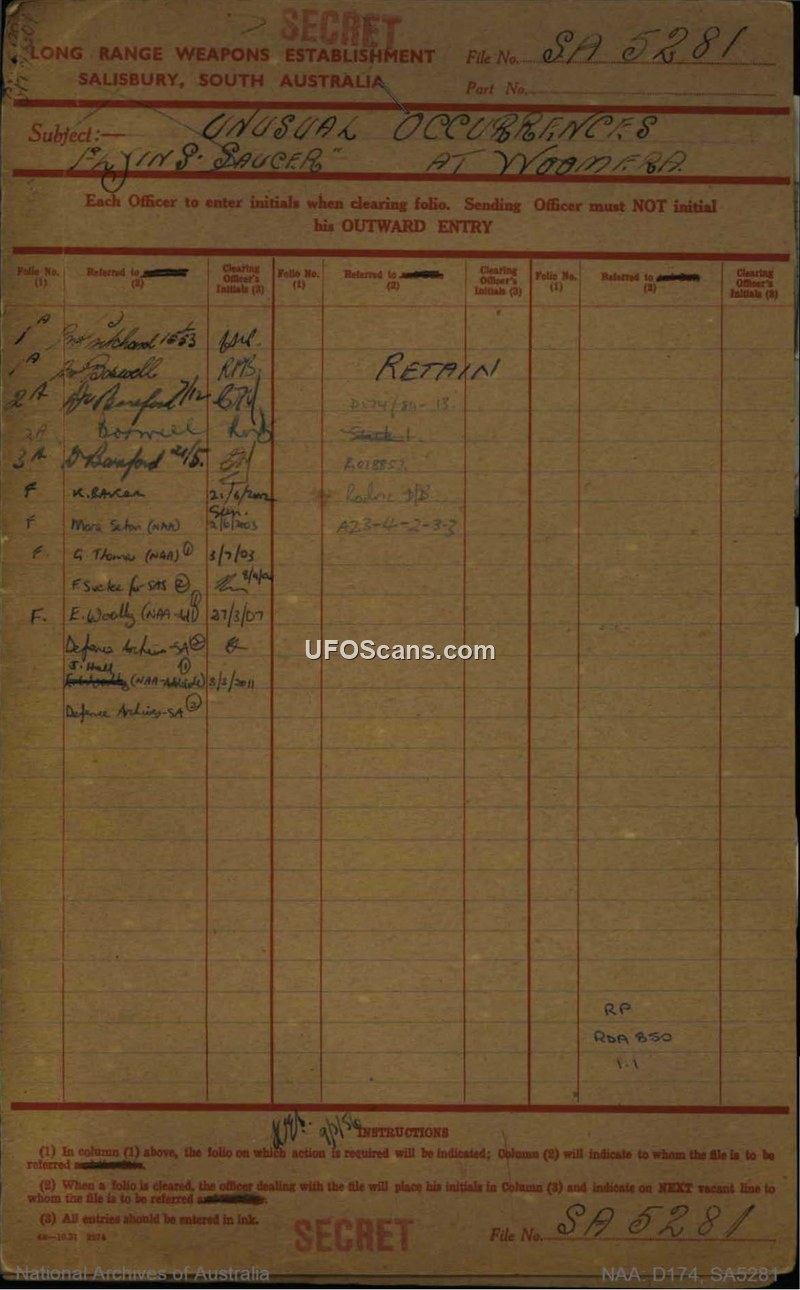 SECRET
LONG RANGE WEAPONS ESTABLISHMENT
SALISBURY, SOUTH AUSTRALIA
File No. SA 5281
Part No.
Subject:— UNUSUAL OCCURRENCES
"FLYING SAUCER" AT WOOMERA.
Each Officer to enter initials when clearing folio. Sending Officer must NOT initial
his OUTWARD ENTRY
Folio No. (1) Referred to (2) Clearing Officer's Initials (3) Folio No. (1) Referred to (2) Clearing Officer's Initials (3) Folio No. (1) Referred to (2) Clearing Officer's Initials (3)
1A
1A Boswell RMB
RETAIN
2A 7/12
D174/80-13
2A Boswell
3A 21/5
F K. BARKER 21/6/2002
F (NAA) 2/6/2003
A23-4-2-3-3
F. G Thomas (NAA) ① 3/7/03
for SAS ②
F. E. Woolly 27/3/07
Defence Archives-SA ②
J. Hall ①
3/2/2011
Defence Archives-SA ②
UFOScans.com
RP
RDA 850
1.1
INSTRUCTIONS
(1) In column (1) above, the folio on which action is required will be indicated; Column (2) will indicate to whom the file is to be
referred
(2) When a folio is cleared, the officer dealing with the file will place his initials in Column (3) and indicate on NEXT vacant line to
whom the file is to be referred
(3) All entries should be entered in ink.
SECRET
File No. SA 5281
National Archives of Australia
NAA: D174, SA5281